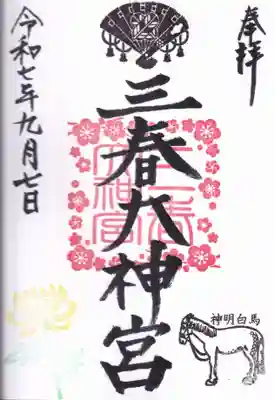 奉拝
三春大神宮
三春大神宮
令和七年九月七日
神明白馬